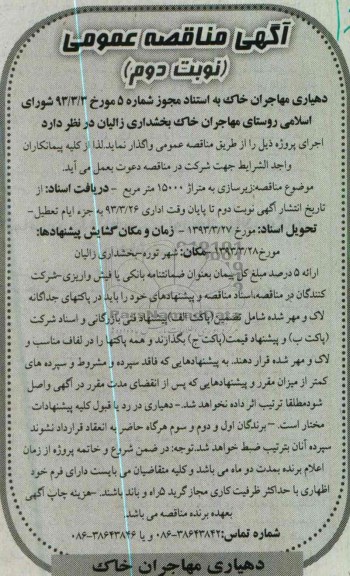 آگهی مناقصه عمومی
(نوبت دوم)
دهیاری مهاجران خاک به استناد مجوز شماره ۵ مورخ ۹۳/۳/۳ شورای
اسلامی روستای مهاجران خاک بخشداری زالیان در نظر دارد
اجرای پروژه ذیل را از طریق مناقصه عمومی واگذار نماید.لذا از کلیه پیمانکاران
واجد الشرایط جهت شرکت در مناقصه دعوت بعمل می آید.
موضوع مناقصه:زیرسازی به متراژ ۱۵۰۰۰ متر مربع - دریافت اسناد: از
تاریخ انتشار آگهی نوبت دوم تا پایان وقت اداری ۹۳/۳/۲۶ به جزء ایام تعطیل-
تحویل اسناد: مورخ ۱۳۹۳/۳/۲۷ - زمان و مکان گشایش پیشنهادها:
مورخ ۱۳۹۳/۳/۲۸ مکان: شهر توره-بخشداری زالیان
ارائه ۵ درصد مبلغ کل پیمان بعنوان ضمانتنامه بانکی یا فیش واریزی-شرکت
کنندگان در مناقصه،اسناد مناقصه و پیشنهادهای خود را باید در پاکتهای جداگانه
لاک و مهر شده شامل تضمین(پاکت الف)پیشنهاد فنی بازرگانی و اسناد شرکت
(پاکت ب) و پیشنهاد قیمت(پاکت ج) بگذارند و همه پاکتها را در لفاف مناسب و
لاک و مهر شده قرار دهند. به پیشنهادهایی که فاقد سپرده و مشروط و سپرده های
کمتر از میزان مقرر و پیشنهادهایی که پس از انقضای مدت مقرر در آگهی واصل
شود مطلقا ترتیب اثر داده نخواهد شد.-دهیاری در رد یا قبول کلیه پیشنهادات
مختار است. -برندگان اول و دوم و سوم هرگاه حاضر به انعقاد قرارداد نشوند
سپرده آنان بترتیب ضبط خواهد شد.توجه:در ضمن شروع و خاتمه پروژه از زمان
اعلام برنده بمدت دو ماه می باشد و کلیه متقاضیان می بایست دارای فرم خود
اظهاری با حداکثر ظرفیت کاری مجاز گرید ۵راه و باند باشند. -هزینه چاپ آگهی
بعهده برنده مناقصه می باشد.
شماره تماس:۳۸۶۴۳۸۴۲-۰۸۶ و یا ۳۸۶۴۳۸۴۶-۰۸۶
دهیاری مهاجران خاک